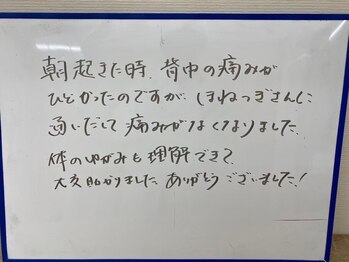 朝起きた時、背中の痛みが
ひどかったのですが、ほねつぎさんに
通いだして痛みがなくなりました。
体のゆがみも理解できて、
大変助かりました ありがとうございました!